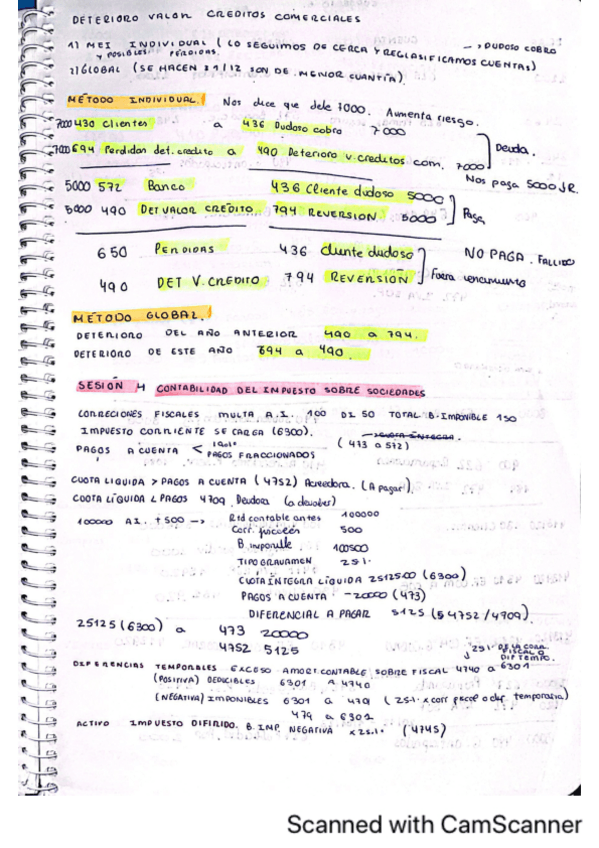 DETERIORO VALOR CREDITOS COMERCIALES
1) MEI INDIVIDUAL (LO SEGUIMOS DE CERCA Y RECLASIFICAMOS CUENTAS) → DUDOSO COBRO
Y POSIBLES PERDIDAS.
2) GLOBAL (SE HACEN 31/12 SON DE MENOR CUANTÍA).
MÉTODO INDIVIDUAL. Nos dice que debe 7000. Aumenta riesgo.
7000 430 Clientes a 436 Dudoso cobro 7000
7000 694 Perdidas det. credito a 490 Deterioro v. creditos com. 7000 Deuda.
Nos paga 5000
5000 572 Banco 436 Cliente dudoso 5000
5000 490 Det valor crédito 794 REVERSIÓN 5000 Paga
650 PERDIDAS 436 cliente dudoso NO PAGA. FALLIDO
490 DET V. CREDITO 794 REVERSIÓN Fuera vencimiento
MÉTODO GLOBAL.
DETERIORO DEL AÑO ANTERIOR 490 a 794.
DETERIORO DE ESTE AÑO 694 a 490.
SESIÓN 4 CONTABILIDAD DEL IMPUESTO SOBRE SOCIEDADES
CORRECIONES FISCALES MULTA A.I. 100 DI 50 TOTAL B. IMPONIBLE 150
IMPUESTO CORRIENTE SE CARGA (6300). → CUOTA INTEGRA.
PAGOS A CUENTA < PAGOS FRACCIONADOS (473 a 572)
CUOTA LIQUIDA > PAGOS A CUENTA (4752) Acreedora. (A pagar).
CUOTA LÍQUIDA < PAGOS 4709. Deudora (a devolver)
100000 A.I. +500 → Rtd contable antes 100000
Corr. fiscales 500
B. imponible 100500
TIPO GRAVAMEN 25%
CUOTA ÍNTEGRA LÍQUIDA 25125.00 (6300)
PAGOS A CUENTA -20000 (473)
DIFERENCIAL A PAGAR 5125 (4752/4709).
25125 (6300) a 473 20000
4752 5125
25% DE LA CORR. FISCAL O DIF TEMPO.
DIFERENCIAS TEMPORALES EXCESO AMORT. CONTABLE SOBRE FISCAL 4740 a 6301
(POSITIVA) DEDUCIBLES 6301 A 4740
(NEGATIVA) IMPONIBLES 6301 a 479 (25% x corr fiscal o dif. temporaria)
479 a 6301
ACTIVO IMPUESTO DIFERIDO. B. IMP. NEGATIVA x 25% (4745)
Scanned with CamScanner